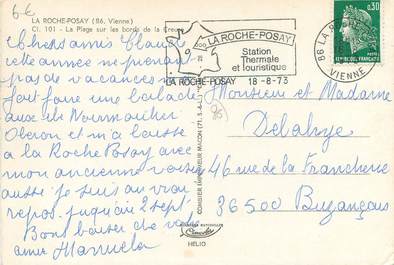 6€
LA ROCHE-POSAY (86. Vienne)
Cl. 101 - La Plage sur les bords de la Creuse
Chers amis Claude
cette année ne prenant
pas de vacances
fait faire une balade
aux îles Noirmoutier
Oleron et m'a laissée
a la Roche Posay avec
mon ancienne voisine
aussi je suis au vrai
repos. jusqu'au 2 sept
Bons baisers de votre
amie
COMBIER IMPRIMEUR MACON (71. S.-&-L.)
CIM
Combier
HELIO
LA ROCHE-POSAY
Station
Thermale
et touristique
LA ROCHE-POSAY 18-8-73
86 LA ROCHE
VIENNE
0,30
REPUBLIQUE FRANCAISE
Monsieur et Madame
Delahye
86
46 rue de la Francherie
36500 Buzançais